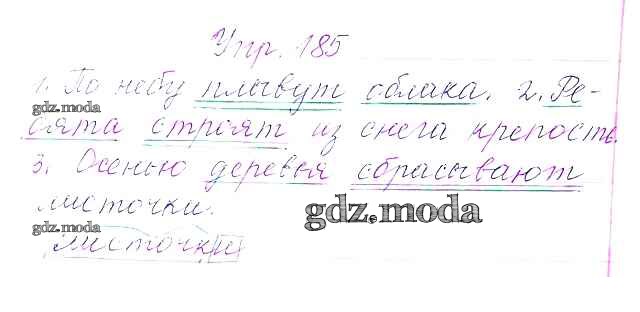 Упр. 185
1. По небу плывут облака. 2. Ре-
gdz.moda
бята строят из снега крепость.
3. Осенью деревья сбрасывают
листочки.
gdz.moda
gdz.moda
листочки